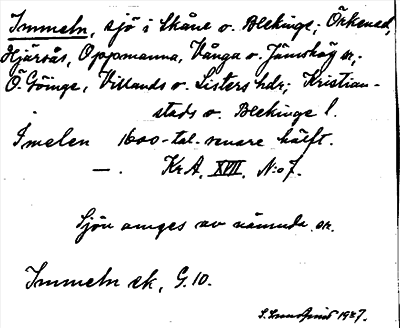 Immeln, sjö i Skåne o. Blekinge; Örkened,
Hjärsås, Oppmanna, Vånga o. Jämshög sn,;
Ö. Göinge, Villands o. Listers hdr; Kristian-
stads o. Blekinge l.
Imelen 1600-tal. senare hälft.
—. Kr A. XVII, N:o 7.
Sjön anges av nämnda sn.
Immeln sk, G. 10.
1927.